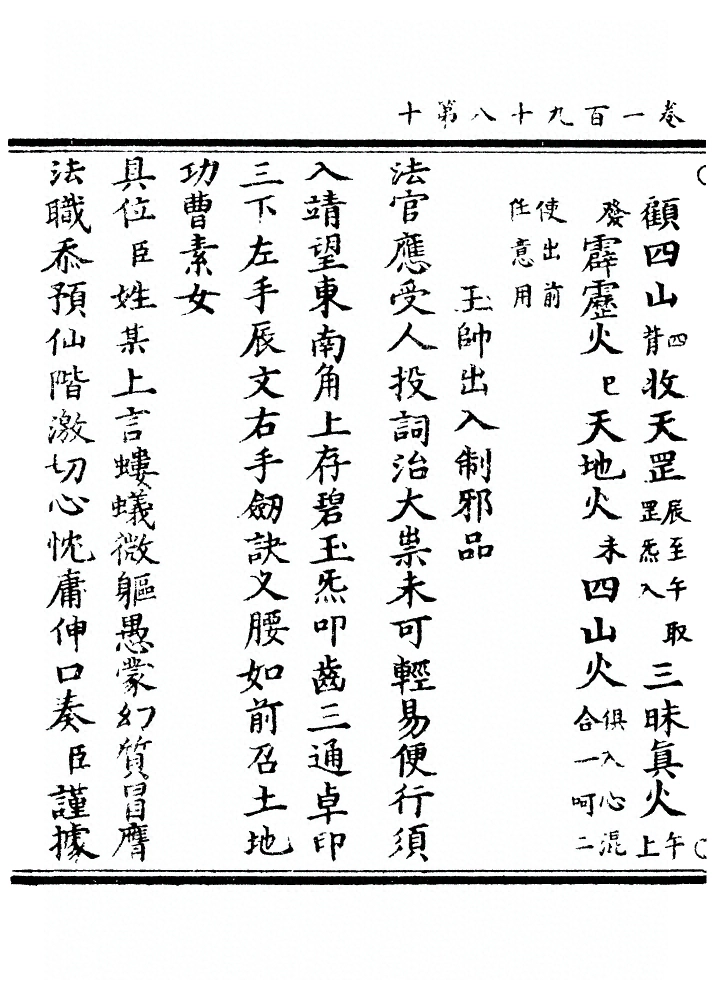 卷一百九十八第十
顧四山四背收天罡辰至午取罡炁入三昧眞火午上
發霹靂火巳天地火未四山火俱入心混合一呵二
使出前任意用
王帥出入制邪品
法官應受人投詞治大祟未可輕易便行須
入靖望東南角上存碧玉炁叩齒三通卓印
三下左手辰文右手劒訣叉腰如前召土地
功曹素女
具位臣姓某上言螻蟻微軀愚蒙幻質冒膺
法職忝預仙階激切心忱庸伸口奏臣謹據